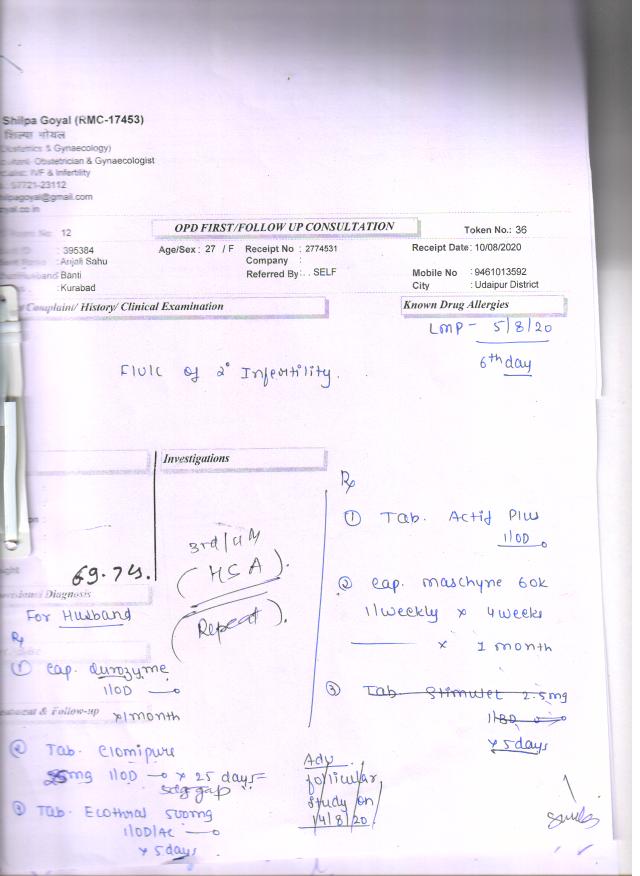 Shilpa Goyal (RMC-17453)
शिल्पा गोयल
& Gynaecology)
Obstetrician & Gynaecologist
IVF & Infertility
97721-23112
OPD FIRST/FOLLOW UP CONSULTATION
Token No.: 36
No: 12
: 395384
Age/Sex : 27 / F
Receipt No : 2774531
Receipt Date: 10/08/2020
: Anjali Sahu
Company :
Banti
Referred By: . . SELF
Mobile No : 9461013592
: Kurabad
City : Udaipur District
Complaint/ History/ Clinical Examination
Known Drug Allergies
LMP - 5/8/20
6th day
of 2° Infertility.
Investigations
Rx
① Tab. Actif Plus
1 OD
3rd/
(HSA).
(Repeat).
② Cap. maschyne 60k
1 weekly x 4 weeks
x 1 month
③ Tab Stimulet 2.5mg
1 BD
x 5 days
69.7
Diagnosis
For Husband
Rx
① Cap. durozyme
1 OD
& Follow-up
x 1 month
② Tab. Clomipure
25mg 1 OD x 25 days =
5dg gap
③ Tab. Ecothral 500mg
1 OD/AC
x 5 days
Adv
follicular
study on
14/8/20